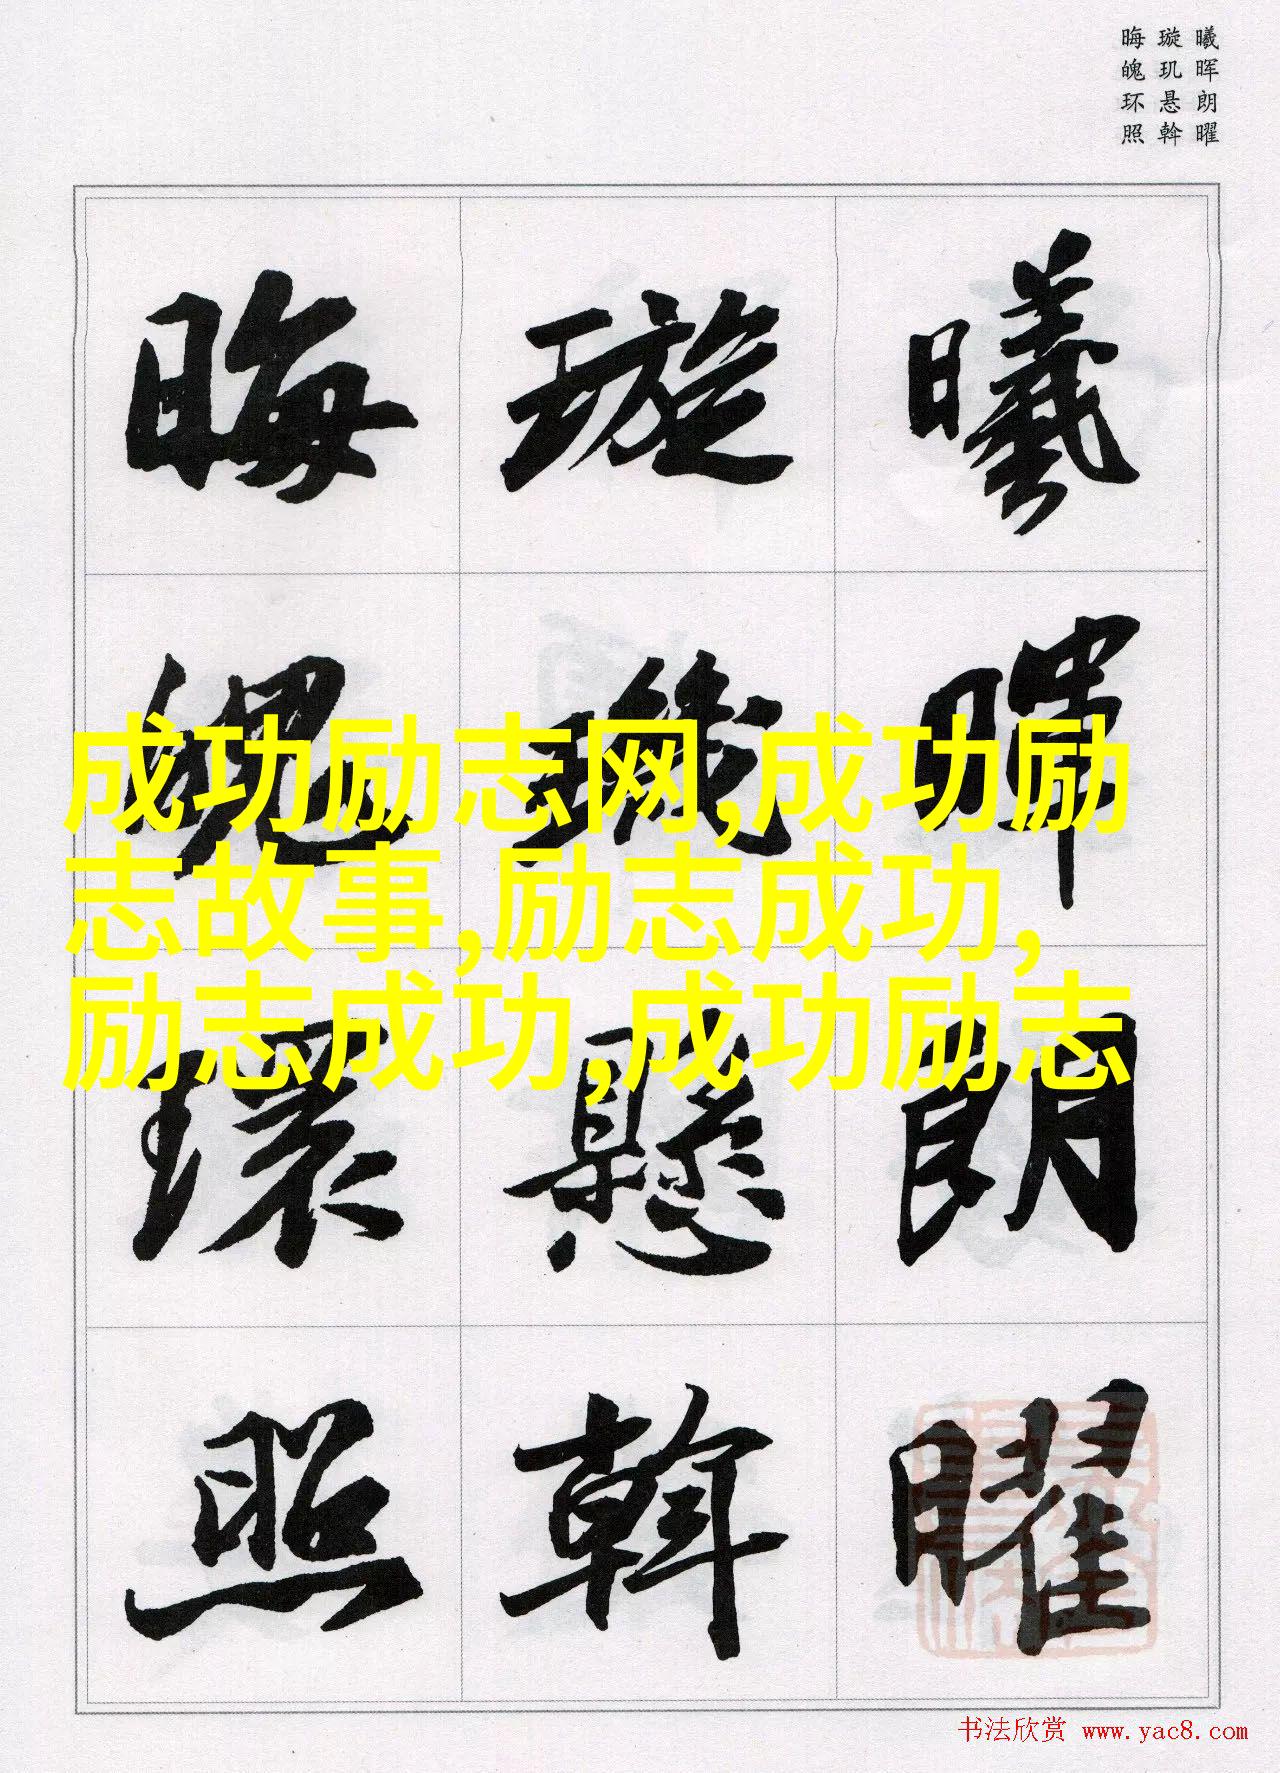 曦晖朗曜
璇玑悬斡
晦魄环照
曦暉朗曜
璇璣懸斡
晦魄環照
成功励志网,成功励
志故事,励志成功,
励志成功,成功励志
书法欣赏 www.yac8.com